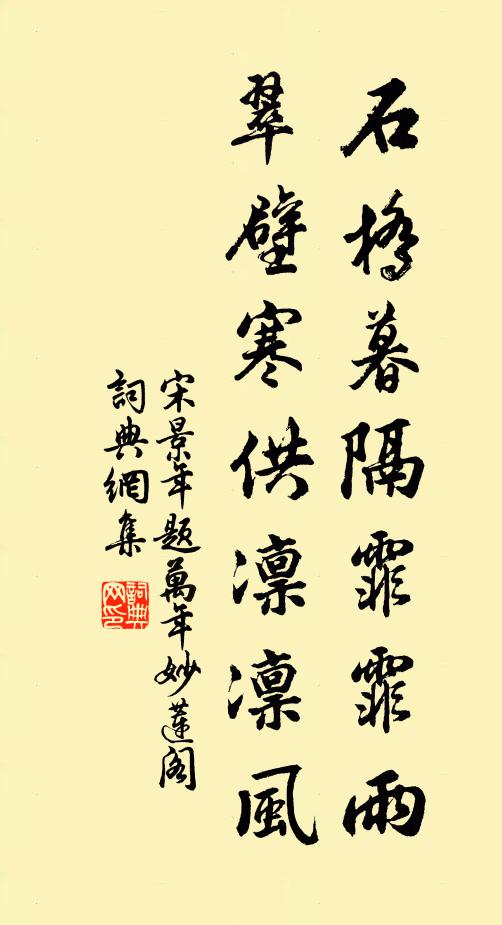 石橋暮隔霏霏雨
翠壁寒供凛凛風
宋景年題萬年妙蓮閣
詞典網集
詞典網印